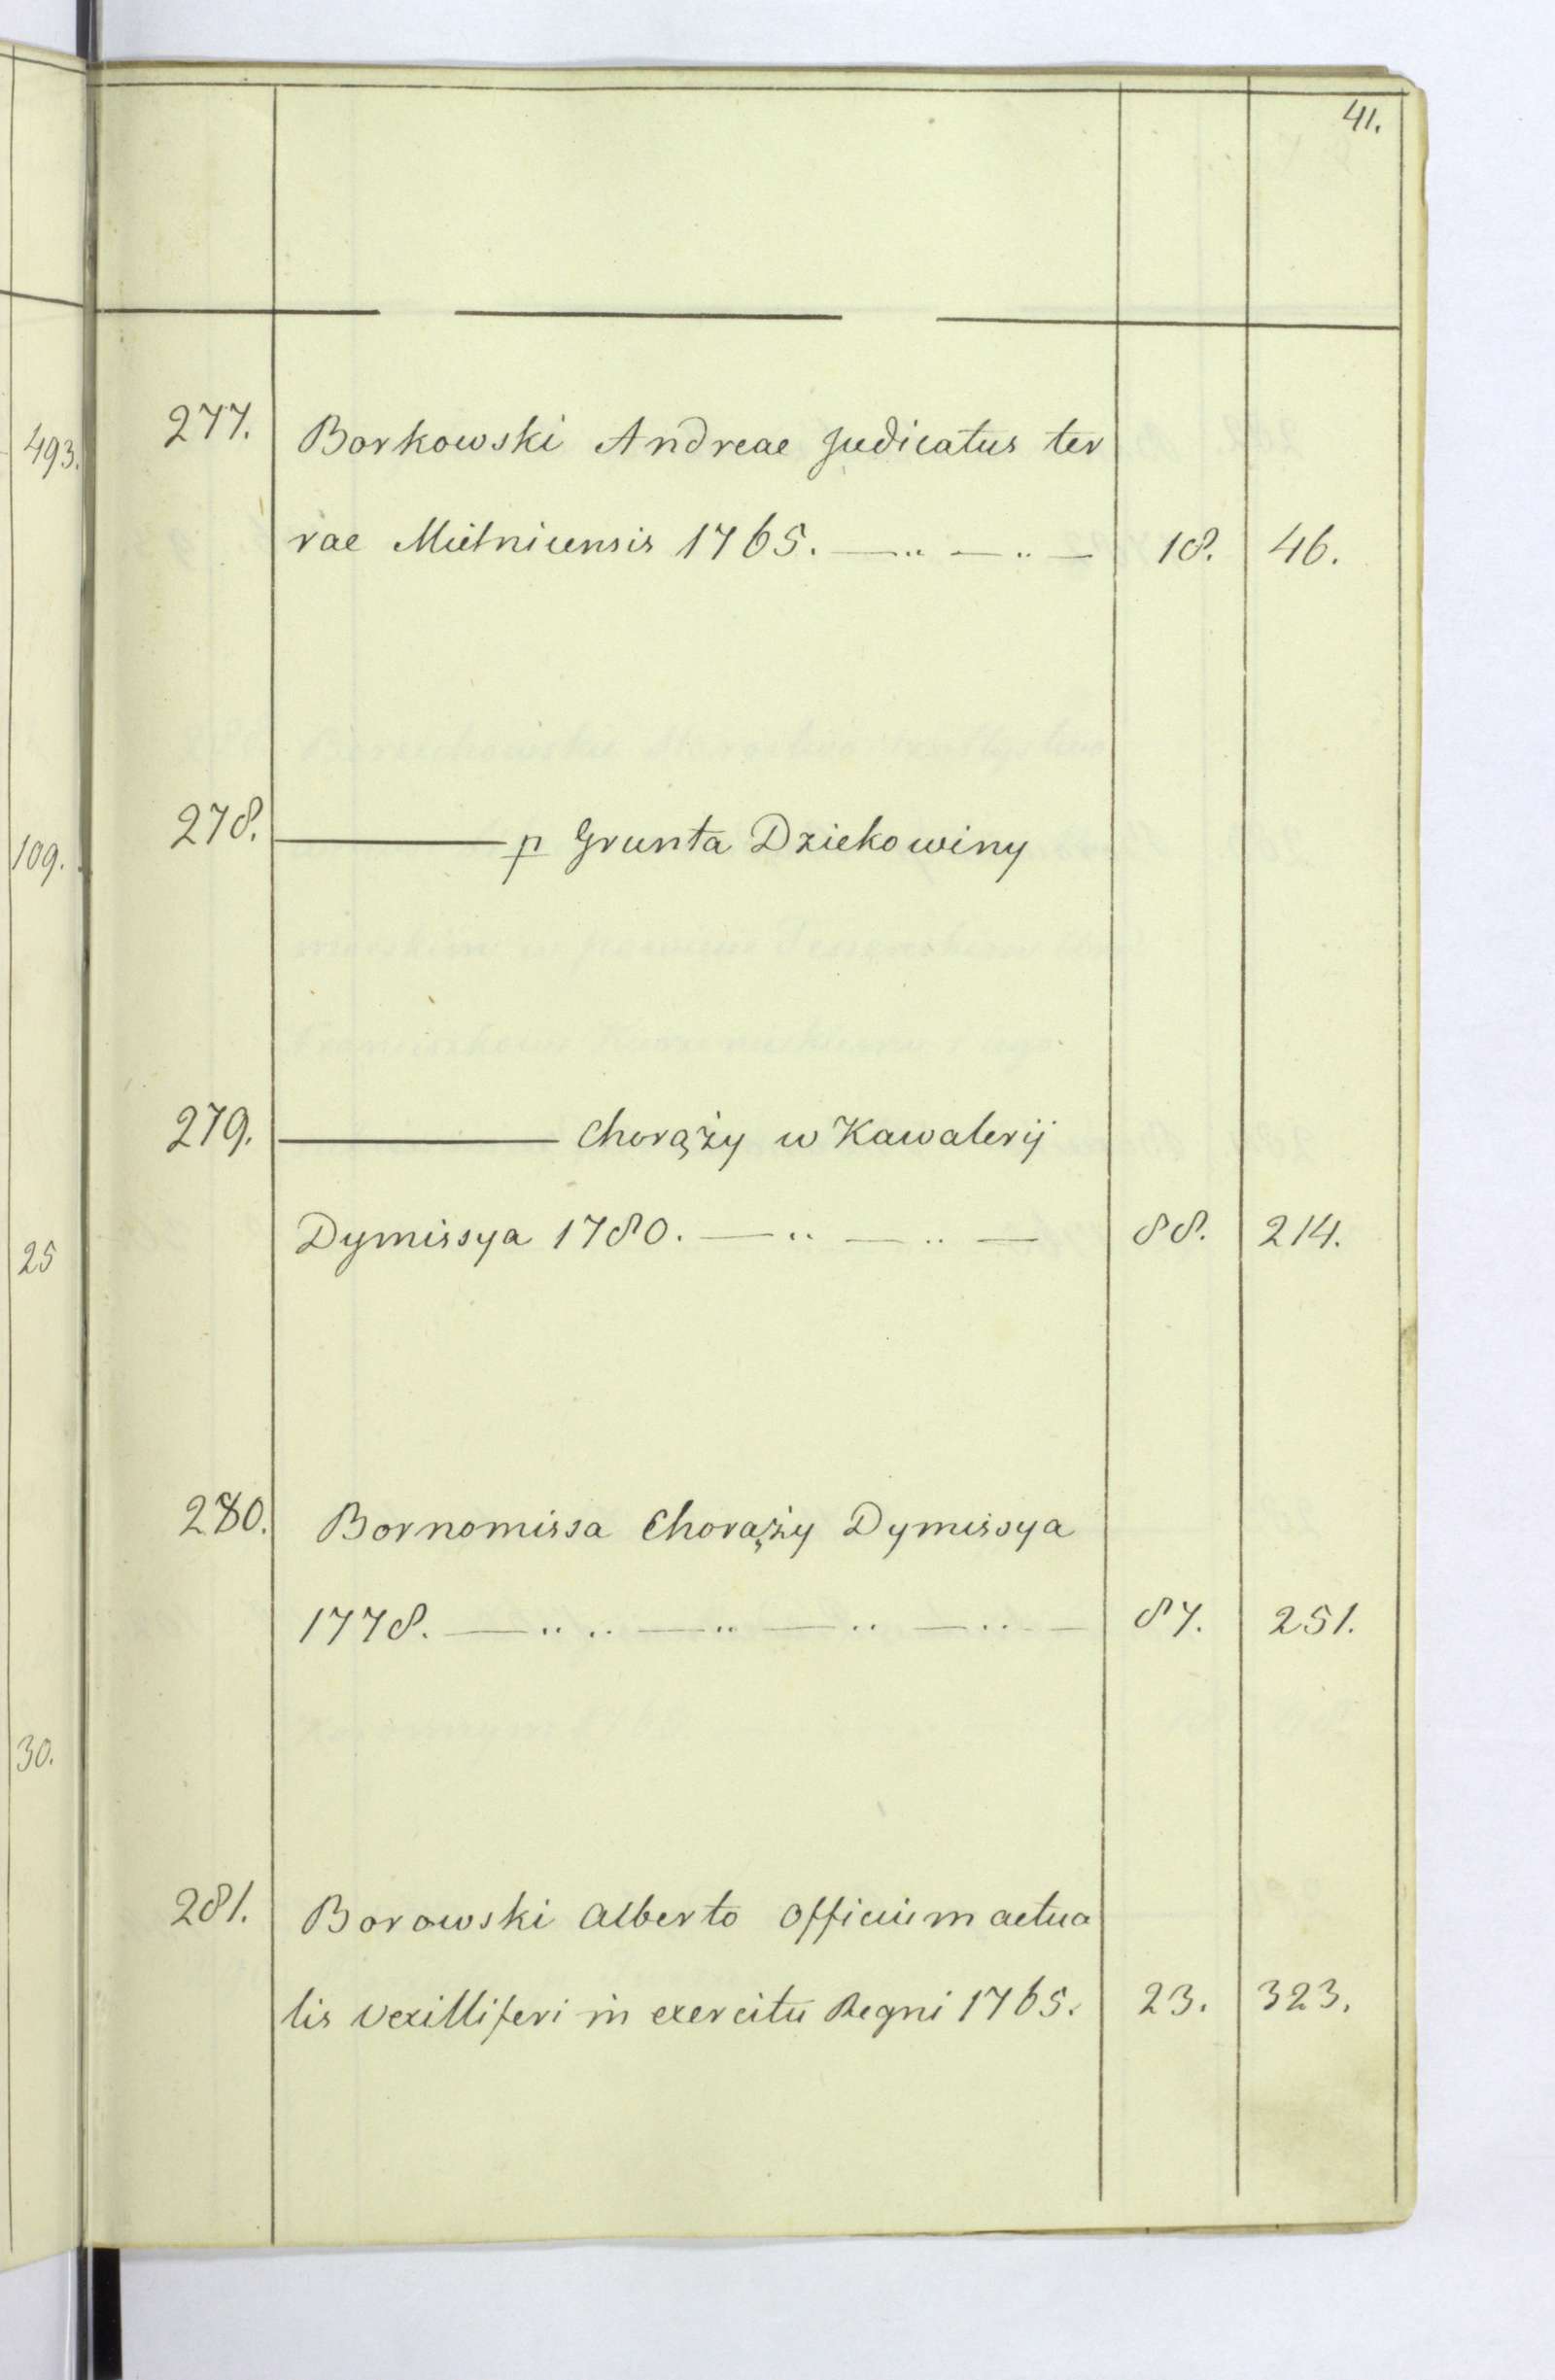 41.
277. Borkowski Andreae Judicatus ter
rae Mielnicensis 1765. 18. 46.
278. p Grunta Dziekowiny
279. Chorąży w Kawaleryj
Dymissya 1780. 88. 214.
280. Bornomissa Chorąży Dymissya
1778. 87. 251.
281. Borowski Alberto Officium actua
lis Vexilliferi in exercitu Regni 1765. 23. 323.
493.
109.
25
30.